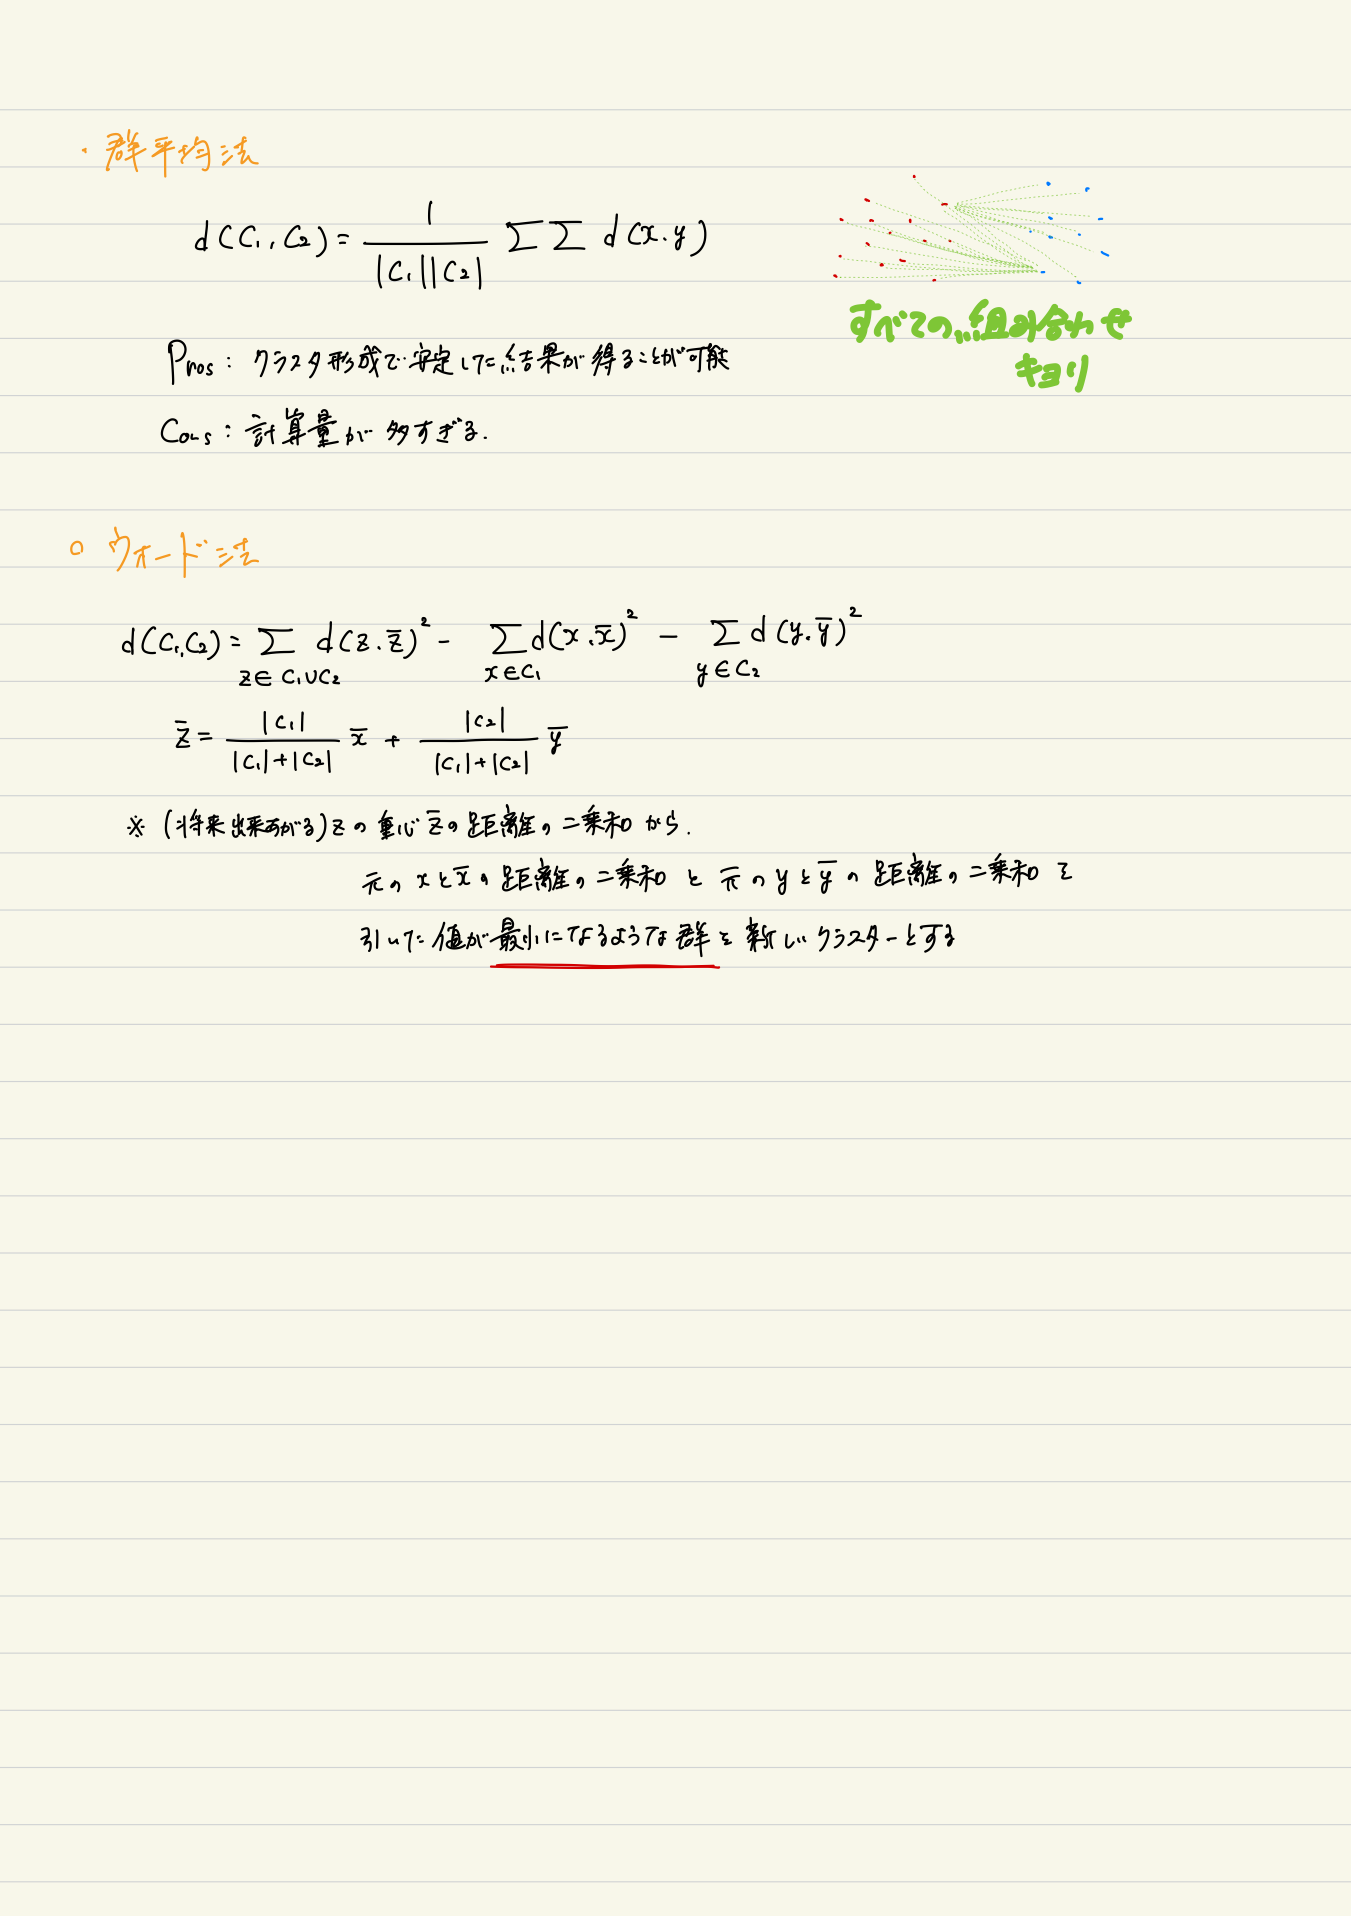 ・群平均法
d(C₁, C₂) = 1 / |C₁||C₂| ΣΣ d(x.y)
すべての点組み合わせ
キョリ
Pros: クラスタ形成で安定した結果が得ることが可能
Cons: 計算量が多すぎる.
○ ウォード法
d(C₁,C₂) = Σ d(z.z̄)² - Σ d(x.x̄)² - Σ d(y.ȳ)²
z∈C₁∪C₂ x∈C₁ y∈C₂
z̄ = |C₁| / |C₁|+|C₂| x̄ + |C₂| / |C₁|+|C₂| ȳ
※ (将来出来あがる) zの重心z̄の距離の二乗和から.
元のxとx̄の距離の二乗和と元のyとȳの距離の二乗和を
引いた値が最小になるような群を新しいクラスターとする